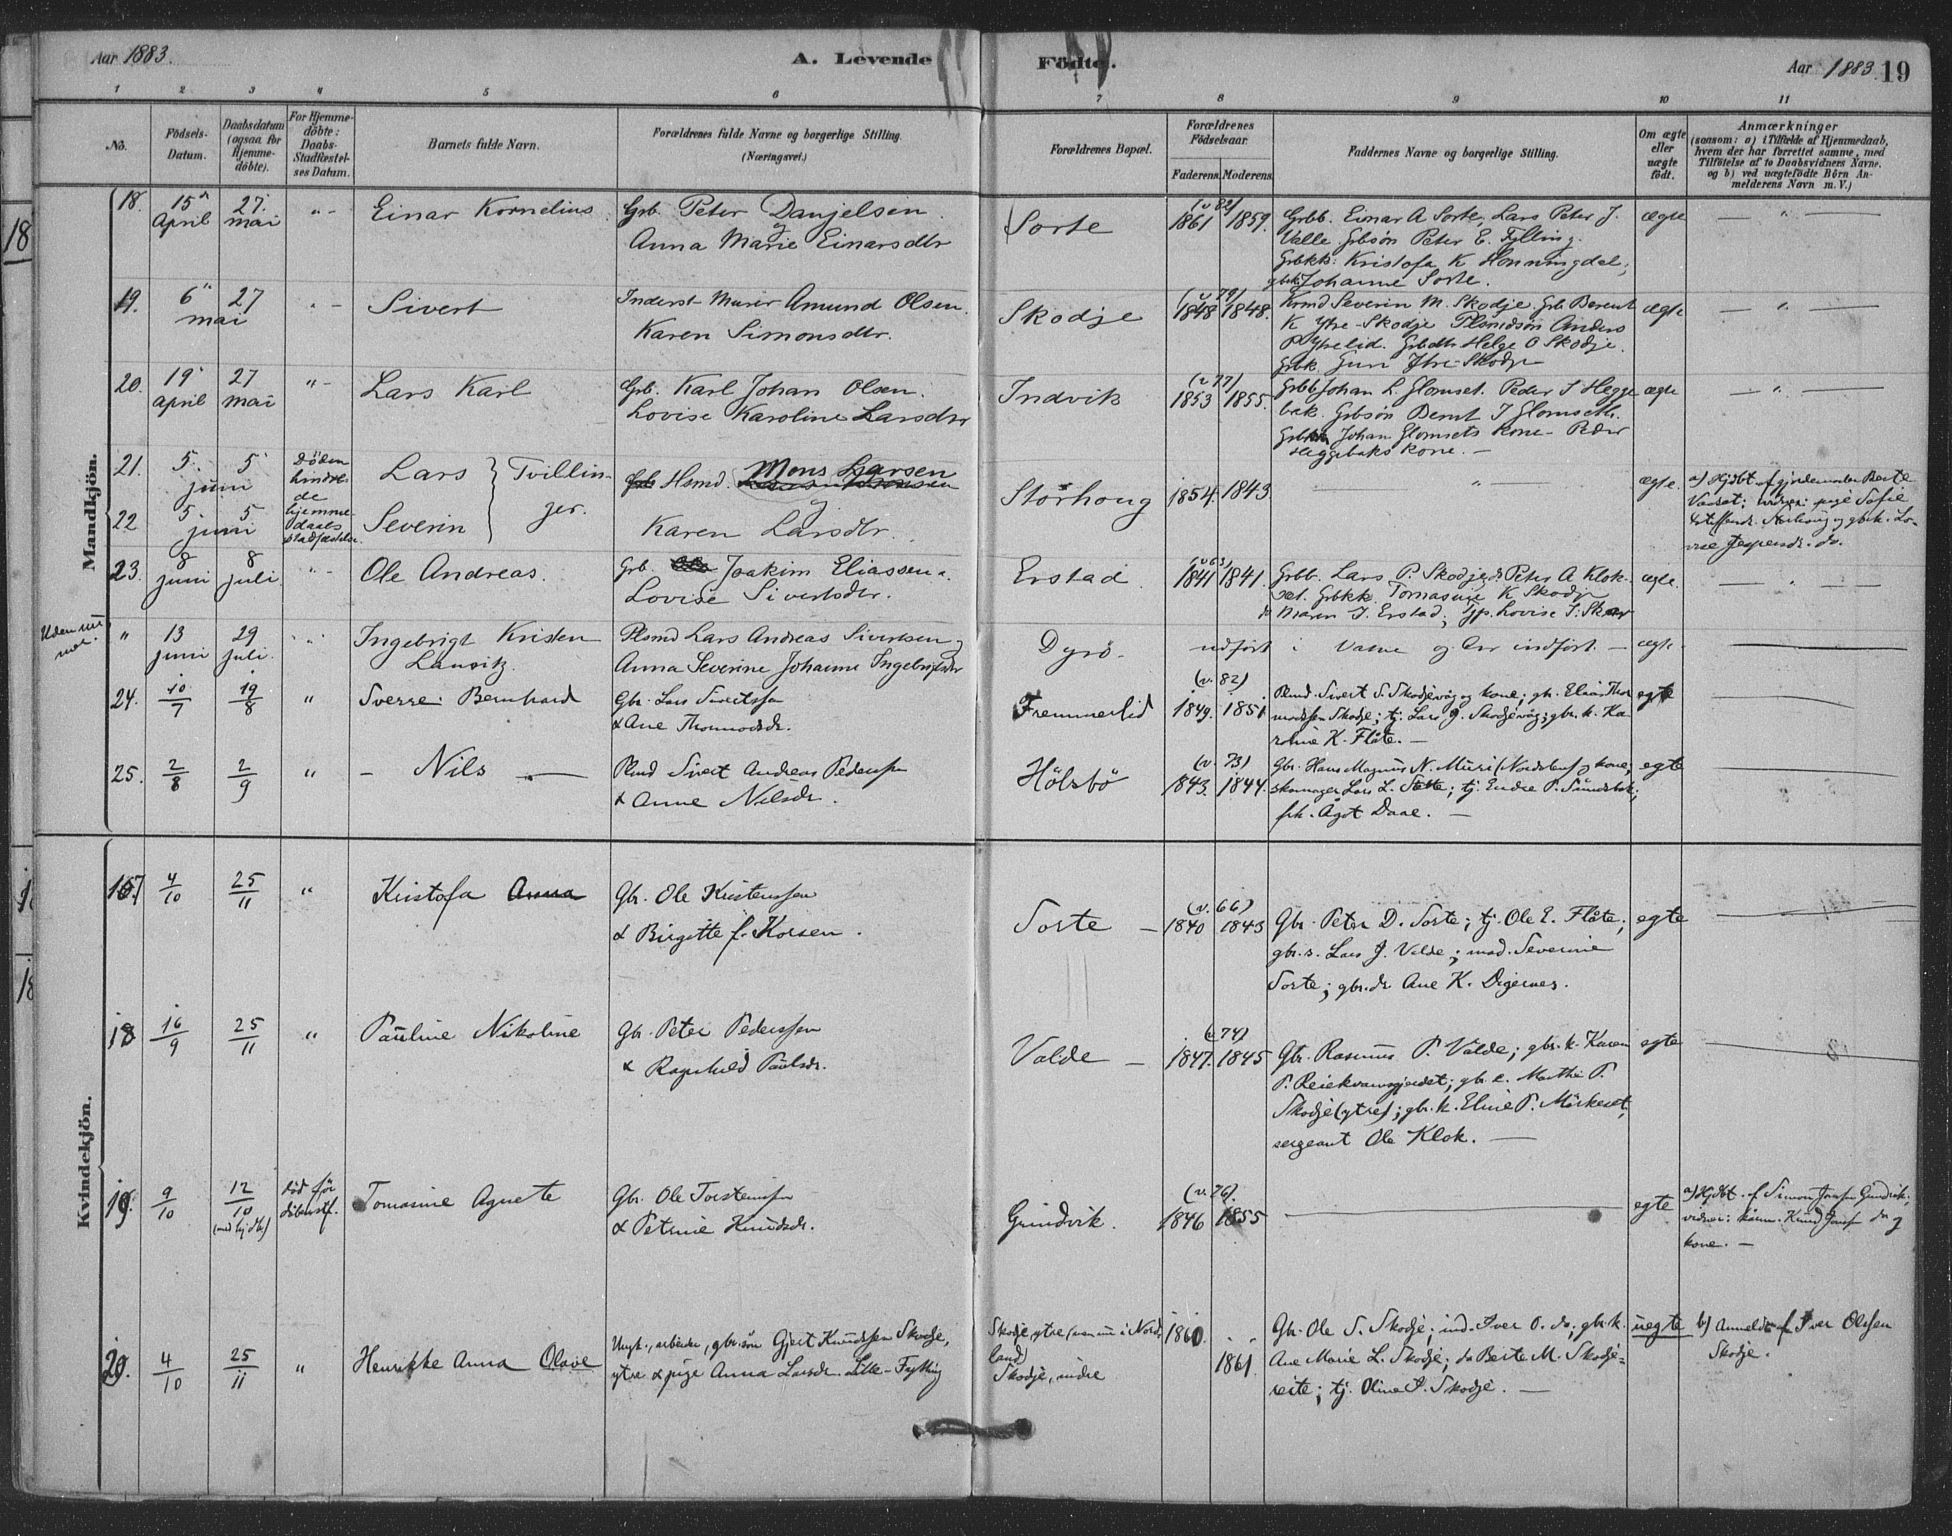 Aar 1883.
A. Levende
Födte.
Aar 1883 19
1 2 3 4 5 6 7 8 9 10 11
No.
Födsels-
Datum.
Daabsdatum
(ogsaa for
Hjemme-
döbte).
For Hjemme-
döbte:
Daabs-
Stadfæstel-
ses Datum.
Barnets fulde Navn.
Forældrenes fulde Navne og borgerlige Stilling.
(Næringsvei.)
Forældrenes Bopæl.
Forældrenes
Födselsaar.
Faderens. Moderens.
Faddernes Navne og borgerlige Stilling.
Om ægte
eller
uægte
födt.
Anmærkninger
(saasom: a) i Tilfælde af Hjemmedaab,
hvem der har forrettet samme, med
Tilföielse af to Daabsvidners Navne,
og b) ved uægtefödte Börn An-
melderens Navn m. V.)
Mandkjön.
18. 15 April
27. mai
Einar Kornelius
Grb. Peter Danjelsen
Anna Marie Einarsdtr
Sorte
(v 82)
1861 1859.
Grbb. Einar A Sorte, Lars Peter J.
Valle Grbsön Peter E. Fylling.
Grbkk: Kristofa K Honningdal;
grbk Johanne Sorte.
ægte
19. 6 mai
27
Sivert
Inderst Murer Amund Olsen
Karen Simonsdtr.
Skodje
(v 79)
1848 1848.
Severin M. Skodje Grb Berent
K Ytre-Skodje Plsmdsön Anders
P Ytrelid. Grbdtr Helge O Skodje.
Grbk. Guri Ytre-Skodje
ægte
20. 19 April
27 mai
Lars Karl
Grb. Karl Johan Olsen.
Lovise Karoline Larsdtr
Indvik
(v 77)
1853 1855.
Grbb Johan L Glomset. Peder I Hegge
bak. Grbsön Bernt J Glomseth.
Johan Glomsets kone - Peder
Heggebaks kone. -
ægte
21. 5. juni
5
Döden
hindre-
de
hjemme-
daabs
stadfæstelse.
Lars } Tvillin-
ger.
Hsmd. Mons Larsen
Karen Larsdtr.
Storhoug
1854. 1843.
ægte.
a) Hjdbt. af gjordemoder Berte
pige Sofie
22 5 juni
5
Severin
23. 8 juni
8 juli
Ole Andreas.
Grb. Joakim Eliassen
Lovise Sivertsdtr.
Erstad
1841 1841.
Grbb. Lars P. Skodje, Peter A Klok-
set. Grbkk Tomasine K Skodje
Maren I. Erstad;
ægte.
Uden num
mer.
13 juni
29 juli.
Ingebrigt Kristen
Lauritz.
Plsmd Lars Andreas Sivertsen
Anna Severine Johanne Ingebrigtsdtr
Dyrö.
udfört i Vatne og her indfört. -
ægte
24. 10/7
19/8
Sverre Bernhard
Gbr. Lars Sivertssen
& Ane Thormodsdr.
Fremmerlid
(v. 82)
1849. 1851.
Plmd. Sivert S. Skodjevåg og kone; gbr. Elias Thor
modssen Skodje; tj. Lars J. Skodjevåg; gbr. k. Ka
roline K. Flåte. -
egte
25. 2/8
2/9
- Nils -
Plmd Sivert Andreas Pedersen
& Anne Nilsdr.
Hölsbö
(v. 73)
1843. 1844.
Gbr. Hans Magnus N. Muri (Nordstuen) og kone;
skomager Lars L. Sætte; tj. Endre P. Sundsbok;
frk. Ågot Daae. -
egte
Kvindekjön.
17 4/10
25/11
Kristofa Anna
Gbr. Ole Kristenssen
& Birgitte f. Korsen.
Sorte -
(v. 66)
1840 1843
Gbr. Peter D. Sorte; tj. Ole E. Flåte;
gbr.s. Lars J. Valde; mad. Severine
Sorte; gbr.dr Ane K. Digernes.
egte
18 16/9
25/11
Pauline Nikoline
Gbr. Peter Pederssen
& Ragnhild Paulsdr.
Valde -
(v. 74)
1847. 1845
Gbr. Rasmus P. Valde; gbr. k. Karen
P. Reiekvamsgjerdet; gbr. e. Marthe P.
Skodje (ytre); gbr. k. Eline P. Mörkeset,
sergeant Ole Klok. -
egte
19. 9/10
12/10
(ved hjdbt)
död för
dåbsstf.
Tomasine Agnete
Gbr. Ole Torstenssen
& Petrine Knudsdr.
Grindvik.
(v. 76).
1846 1855
egte
a) Hjdbt. af Simon Janssen Grindvik;
vidner: kårm. Knud Janss. do og
kone. -
20. 4/10
25/11
Henrikke Anna Olave
Ungk., arbeider, gbr.sön Gjert Knudssen Skodje,
ytre & pige Anna Larsdr. Lille-Fylling
Skodje, ytre (nu i Nord
land)
Skodje, indre
1860.
1861
Gbr. Ole S. Skodje; ind. Iver O. do; gbr. k.
Ane Marie L. Skodje; do Berte M. Skodje-
reite; tj. Oline I. Skodje. -
uegte
b) Anmeldt af Iver Olssen
Skodje.